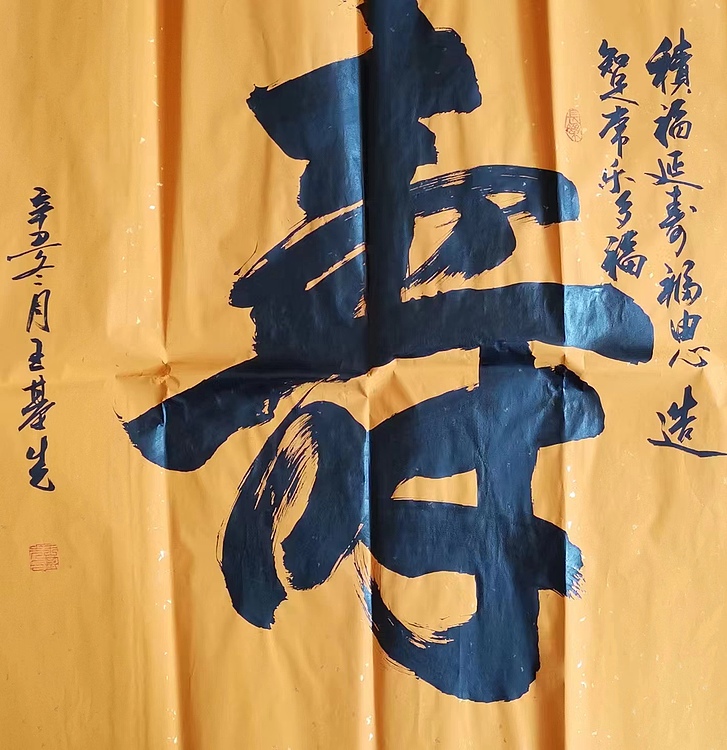 積福延壽福由心造
知足常乐多福
壽
辛丑冬月王基先